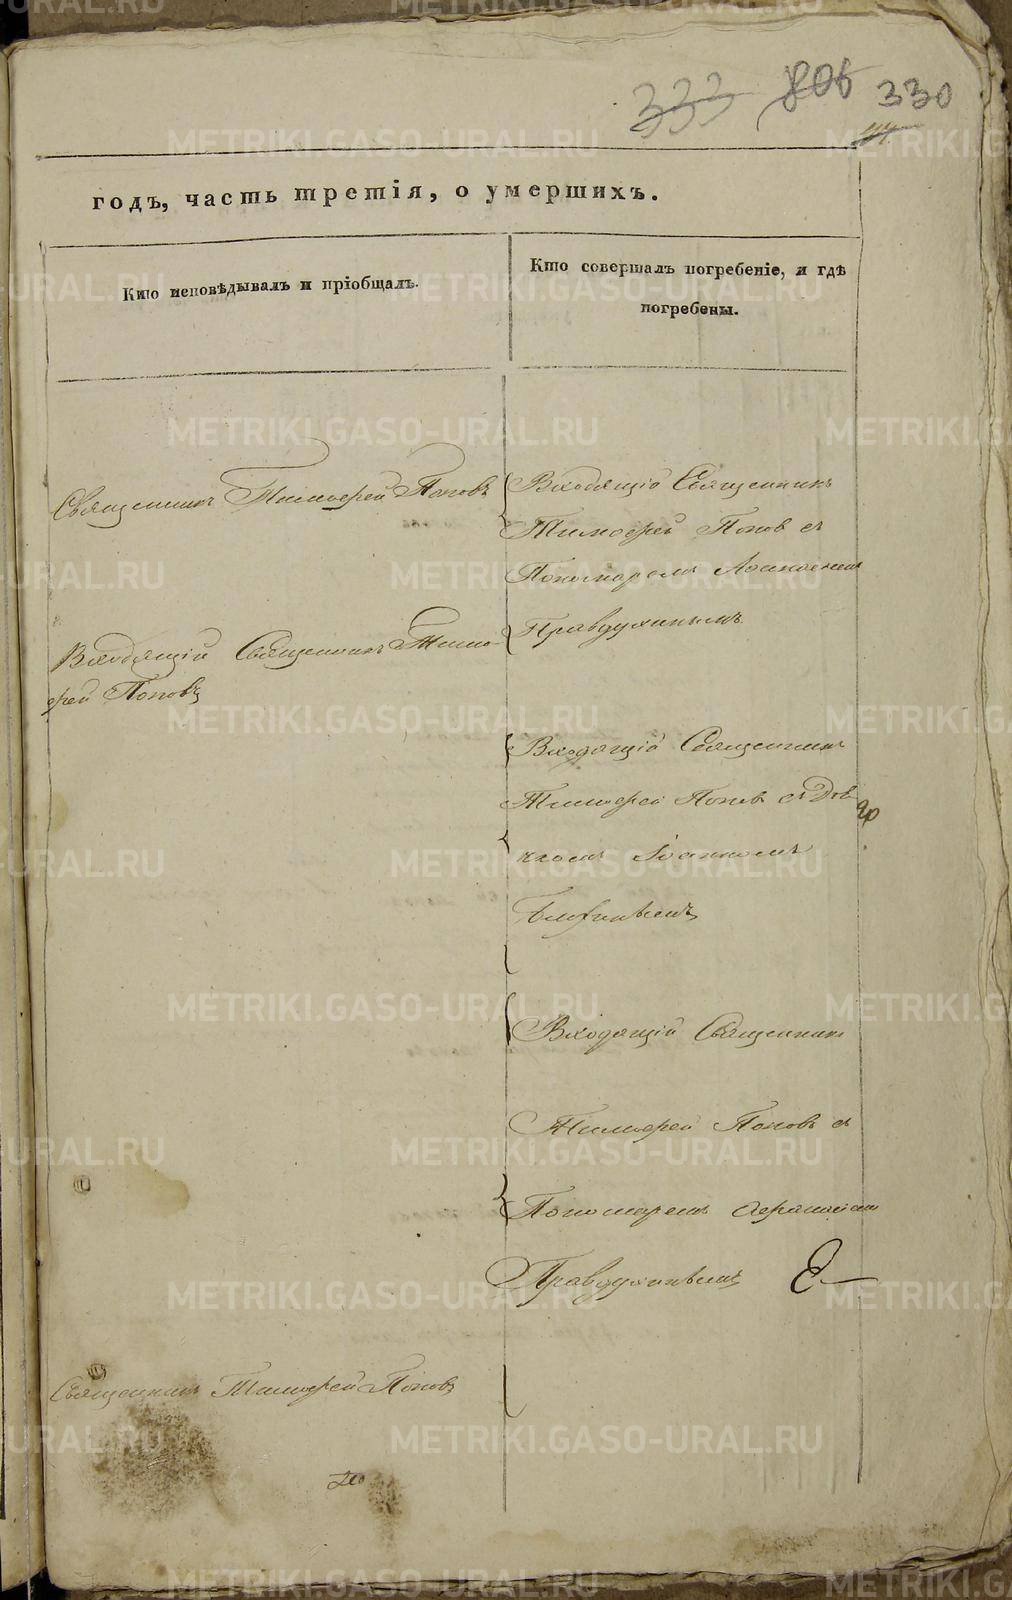 333 806 330
годъ, часть третія, о умершихъ.
Кто исповѣдывалъ и пріобщалъ.
Кто совершалъ погребеніе, и гдѣ
погребены.
Священникъ Тимофей Поповъ
Входящій Священникъ
Тимофей Попов съ
Пономаремъ
Правдухинымъ
Входящій Священникъ Тимо-
фей Поповъ
Входящій Священникъ
Тимофей Поповъ съ
Іоанномъ
Входящій Священникъ
Тимофей Поповъ съ
Пономаремъ
Правдухинымъ
Священникъ Тимофей Поповъ
METRIKI.GASO-URAL.RU